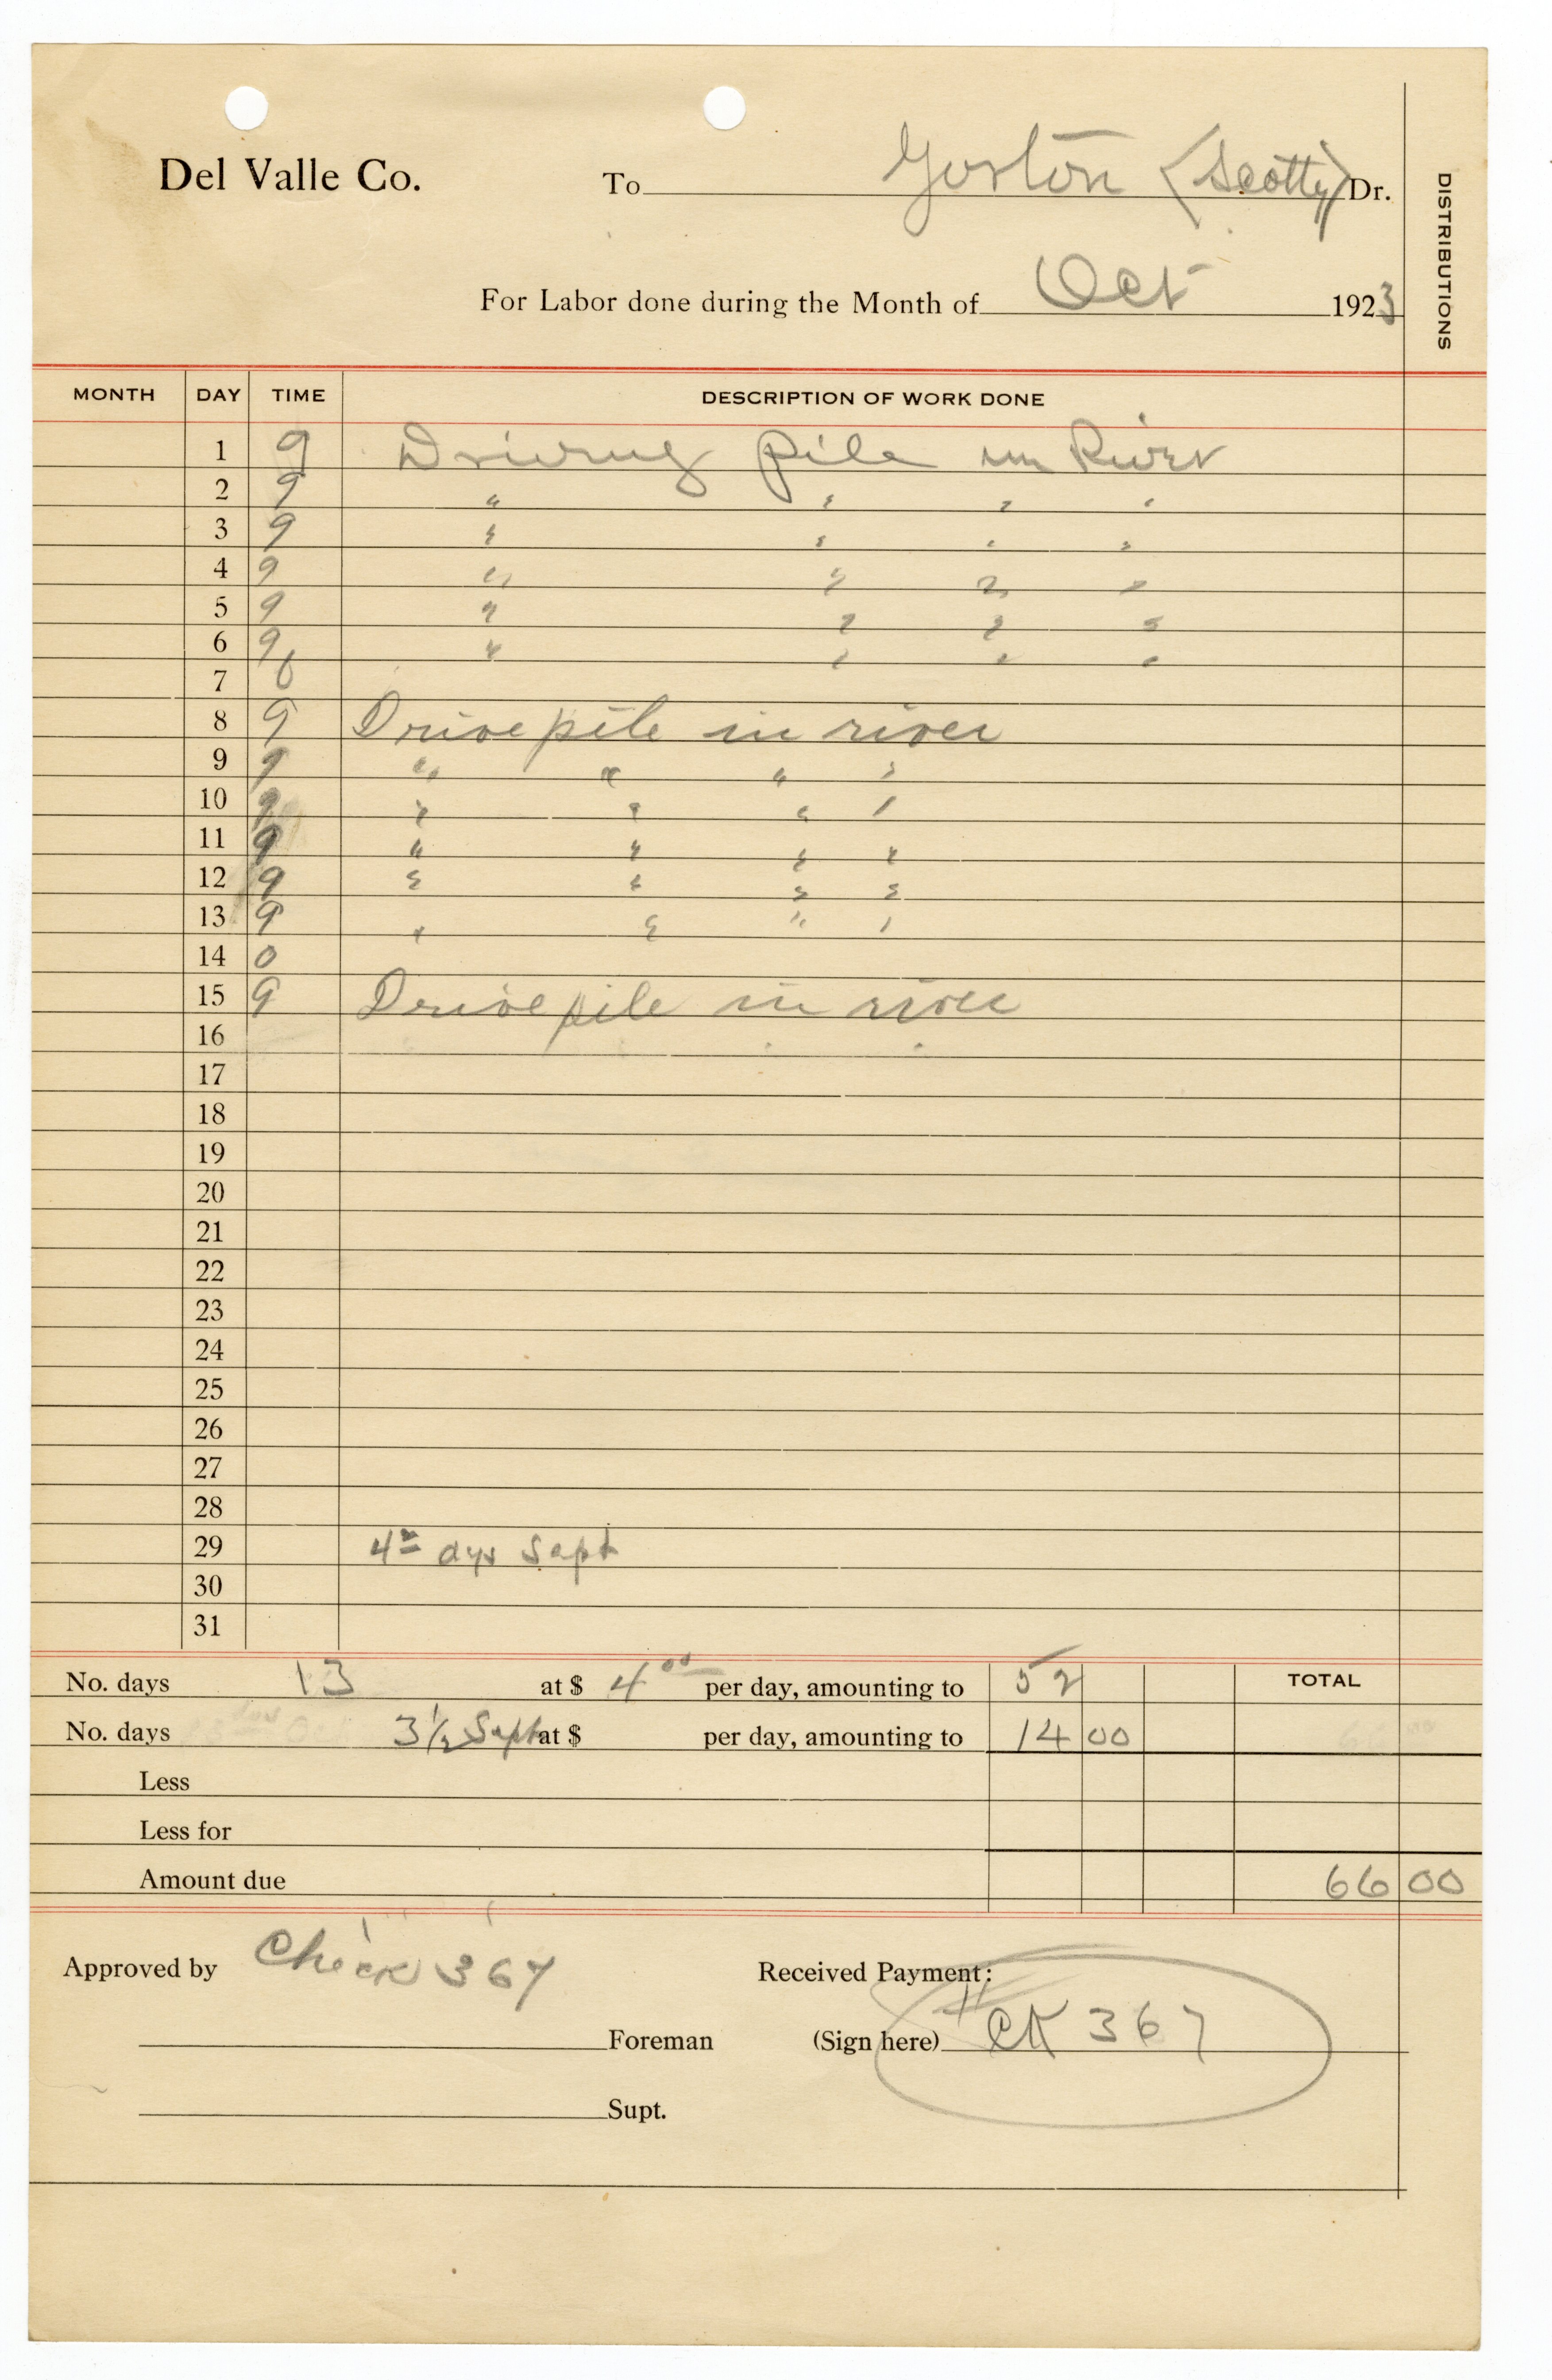 Del Valle Co. To Gorton (Scotty) Dr.
DISTRIBUTIONS
For Labor done during the Month of Oct 1923
MONTH DAY TIME DESCRIPTION OF WORK DONE
1 9 Driving Pile in River
2 9 " " " "
3 9 " " " "
4 9 " " " "
5 9 " " " "
6 9 " " " "
7 0
8 9 Drive pile in river
9 9 " " " "
10 9 " " " "
11 9 " " " "
12 9 " " " "
13 9 " " " "
14 0
15 9 Drive pile in river
16
17
18
19
20
21
22
23
24
25
26
27
28
29 dys Sept
30
31
No. days 13 at $ 4 00 per day, amounting to 52 TOTAL
No. days 3 1/2 Sept at $ per day, amounting to 14 00
Less
Less for
Amount due 66 00
Approved by Check 367 Received Payment:
Foreman (Sign here) # CK 367
Supt.